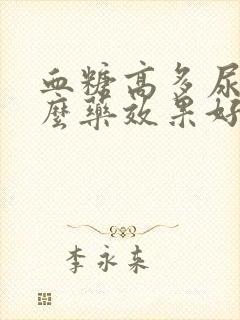 血糖高多尿
麼藥效果好
李永来